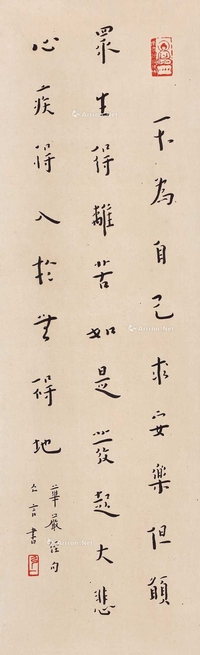 不為自己求安樂但願
眾生得離苦如是發起大悲
心疾得入於無碍地
華嚴經句
亡言書